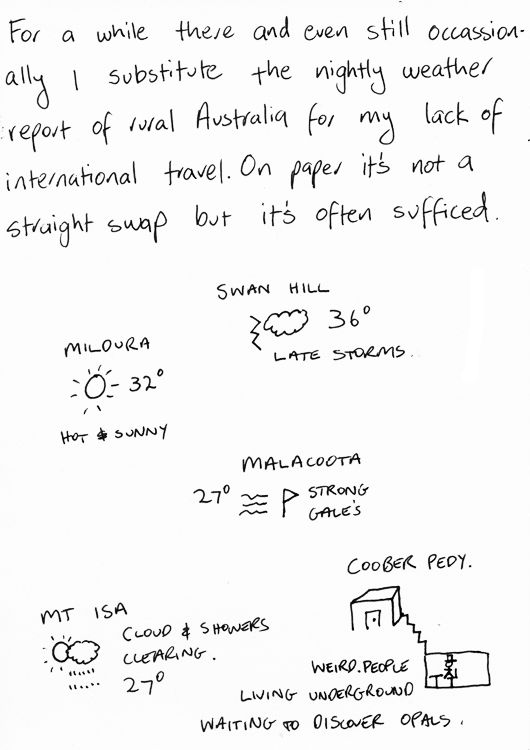 For a while there and even still occassion-
ally I substitute the nightly weather
report of rural Australia for my lack of
international travel. On paper it's not a
straight swap but it's often sufficed.
SWAN HILL
36°
LATE STORMS.
MILDURA
32°
HOT & SUNNY
MALACOOTA
27° STRONG
GALE'S
COOBER PEDY.
WEIRD.PEOPLE
LIVING UNDERGROUND
WAITING TO DISCOVER OPALS.
MT ISA
CLOUD & SHOWERS
CLEARING.
27°